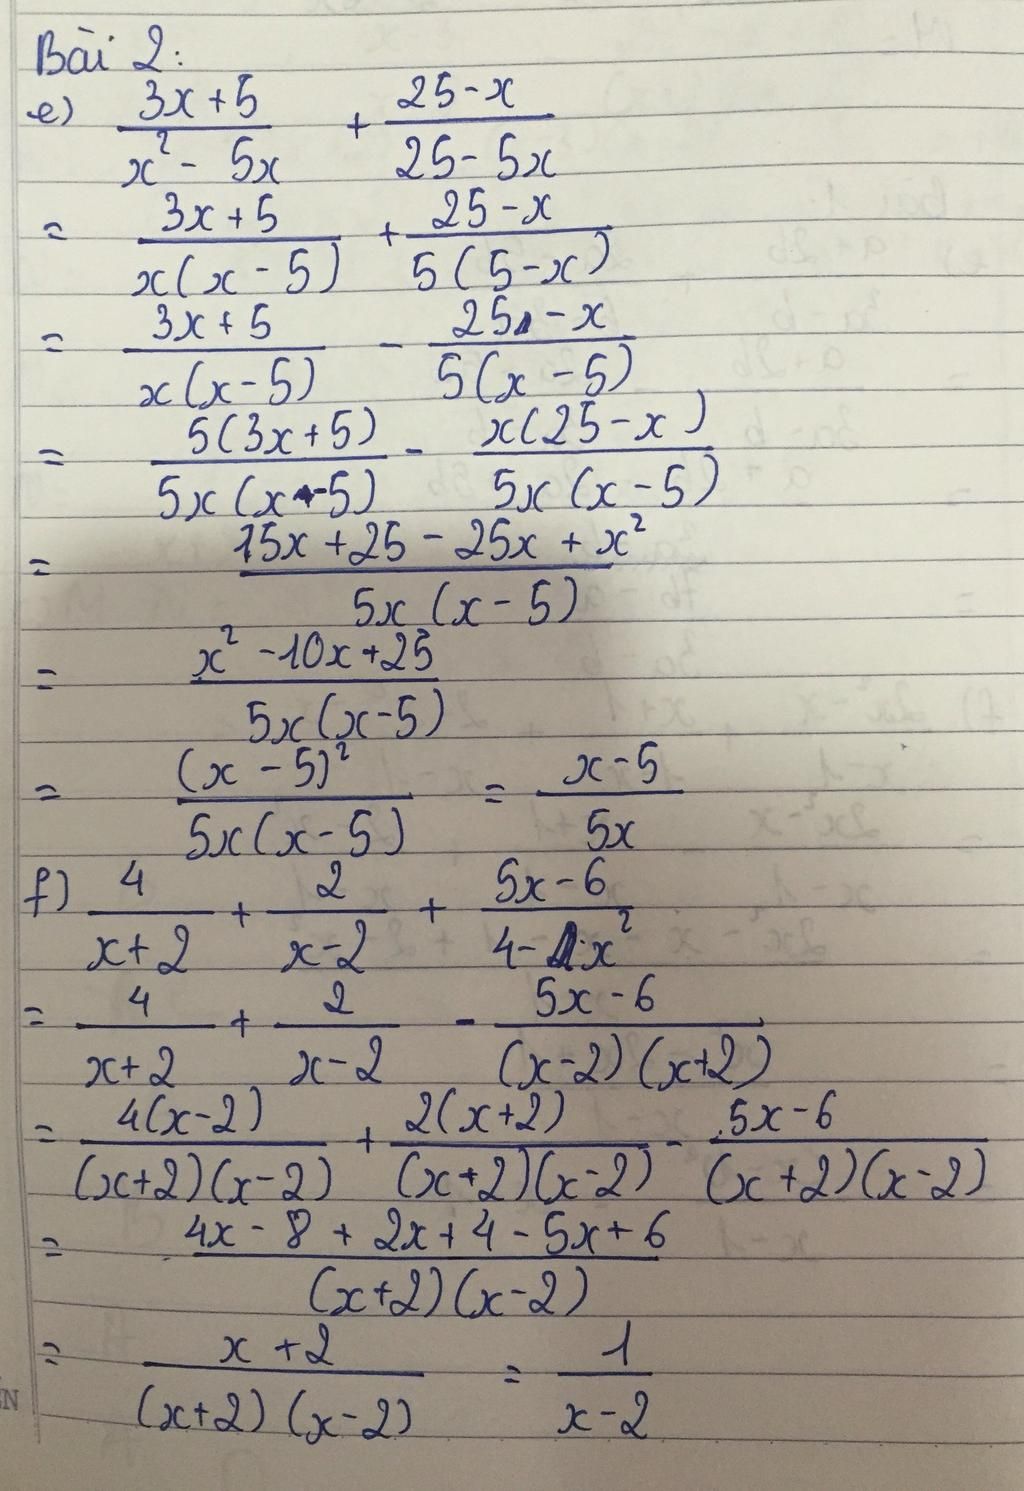 Bài 2:
e) (3x+5)/(x² - 5x) + (25-x)/(25-5x)
= (3x+5)/(x(x-5)) + (25-x)/(5(5-x))
= (3x+5)/(x(x-5)) - (25-x)/(5(x-5))
= (5(3x+5))/(5x(x-5)) - (x(25-x))/(5x(x-5))
= (15x+25-25x+x²)/(5x(x-5))
= (x²-10x+25)/(5x(x-5))
= ((x-5)²)/(5x(x-5)) = (x-5)/(5x)
f) 4/(x+2) + 2/(x-2) + (5x-6)/(4-x²)
= 4/(x+2) + 2/(x-2) - (5x-6)/((x-2)(x+2))
= (4(x-2))/((x+2)(x-2)) + (2(x+2))/((x+2)(x-2)) - (5x-6)/((x+2)(x-2))
= (4x-8+2x+4-5x+6)/((x+2)(x-2))
= (x+2)/((x+2)(x-2)) = 1/(x-2)